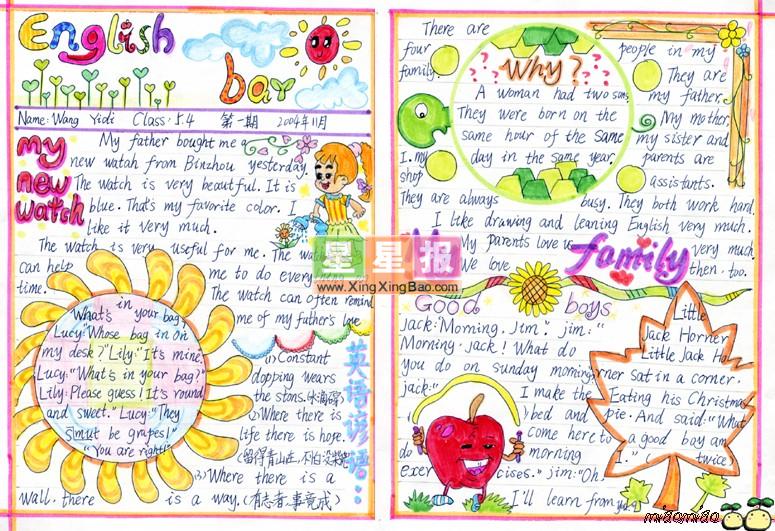 English
bay
Name: Wang Yidi Class: 5.4 第一期 2004年11月
my
new
watch
My father bought me a
new watah from Binzhou yesterday
The watch is very beautiful. It is
blue. That's my favorite color. I
like it very much.
The watch is very useful for me. The watch
can help me to do every
time. The watch can often remind
me of my father's love
What's in your bag,
Lucy:"Whose bag in on
my desk?" Lily:"It's mine.
Lucy:"What's in your bag?"
Lily: Please guess! It's round
and sweet." Lucy:"They
must be grapes!"
"You are right!"
(1) Constant
dopping wears
the stons. (水滴石穿)
(2) Where there is
life there is hope.
(留得青山在,不怕没柴烧)
(3) Where there is a
wall, there is a way. (有志者事竟成)
英语谚语...
There are
four people in my
family. They are
my father.
My mother.
my sister and
I. my parents are
shop assistants.
They are always busy. They both work hard.
I like drawing and leaning English very much.
My parents love us very much
We love then. too.
family
Why?
A woman had two sons,
They were born on the
same hour of the same
day in the same year.
Good boys
jack:"Morning. Jim". jim:"
Morning. jack! What do
you do on sunday morning
jack:" I make the
bed and
come here to
do morning
exercises." jim:"Oh.
I'll learn from you."
Little
Jack Horner
Little Jack Ho
rner sat in a corner.
Eating his Christmas
pie. And said:"What
a good boy am
I." ( twice)
星星报
www.XingXingBao.com
miaomiao